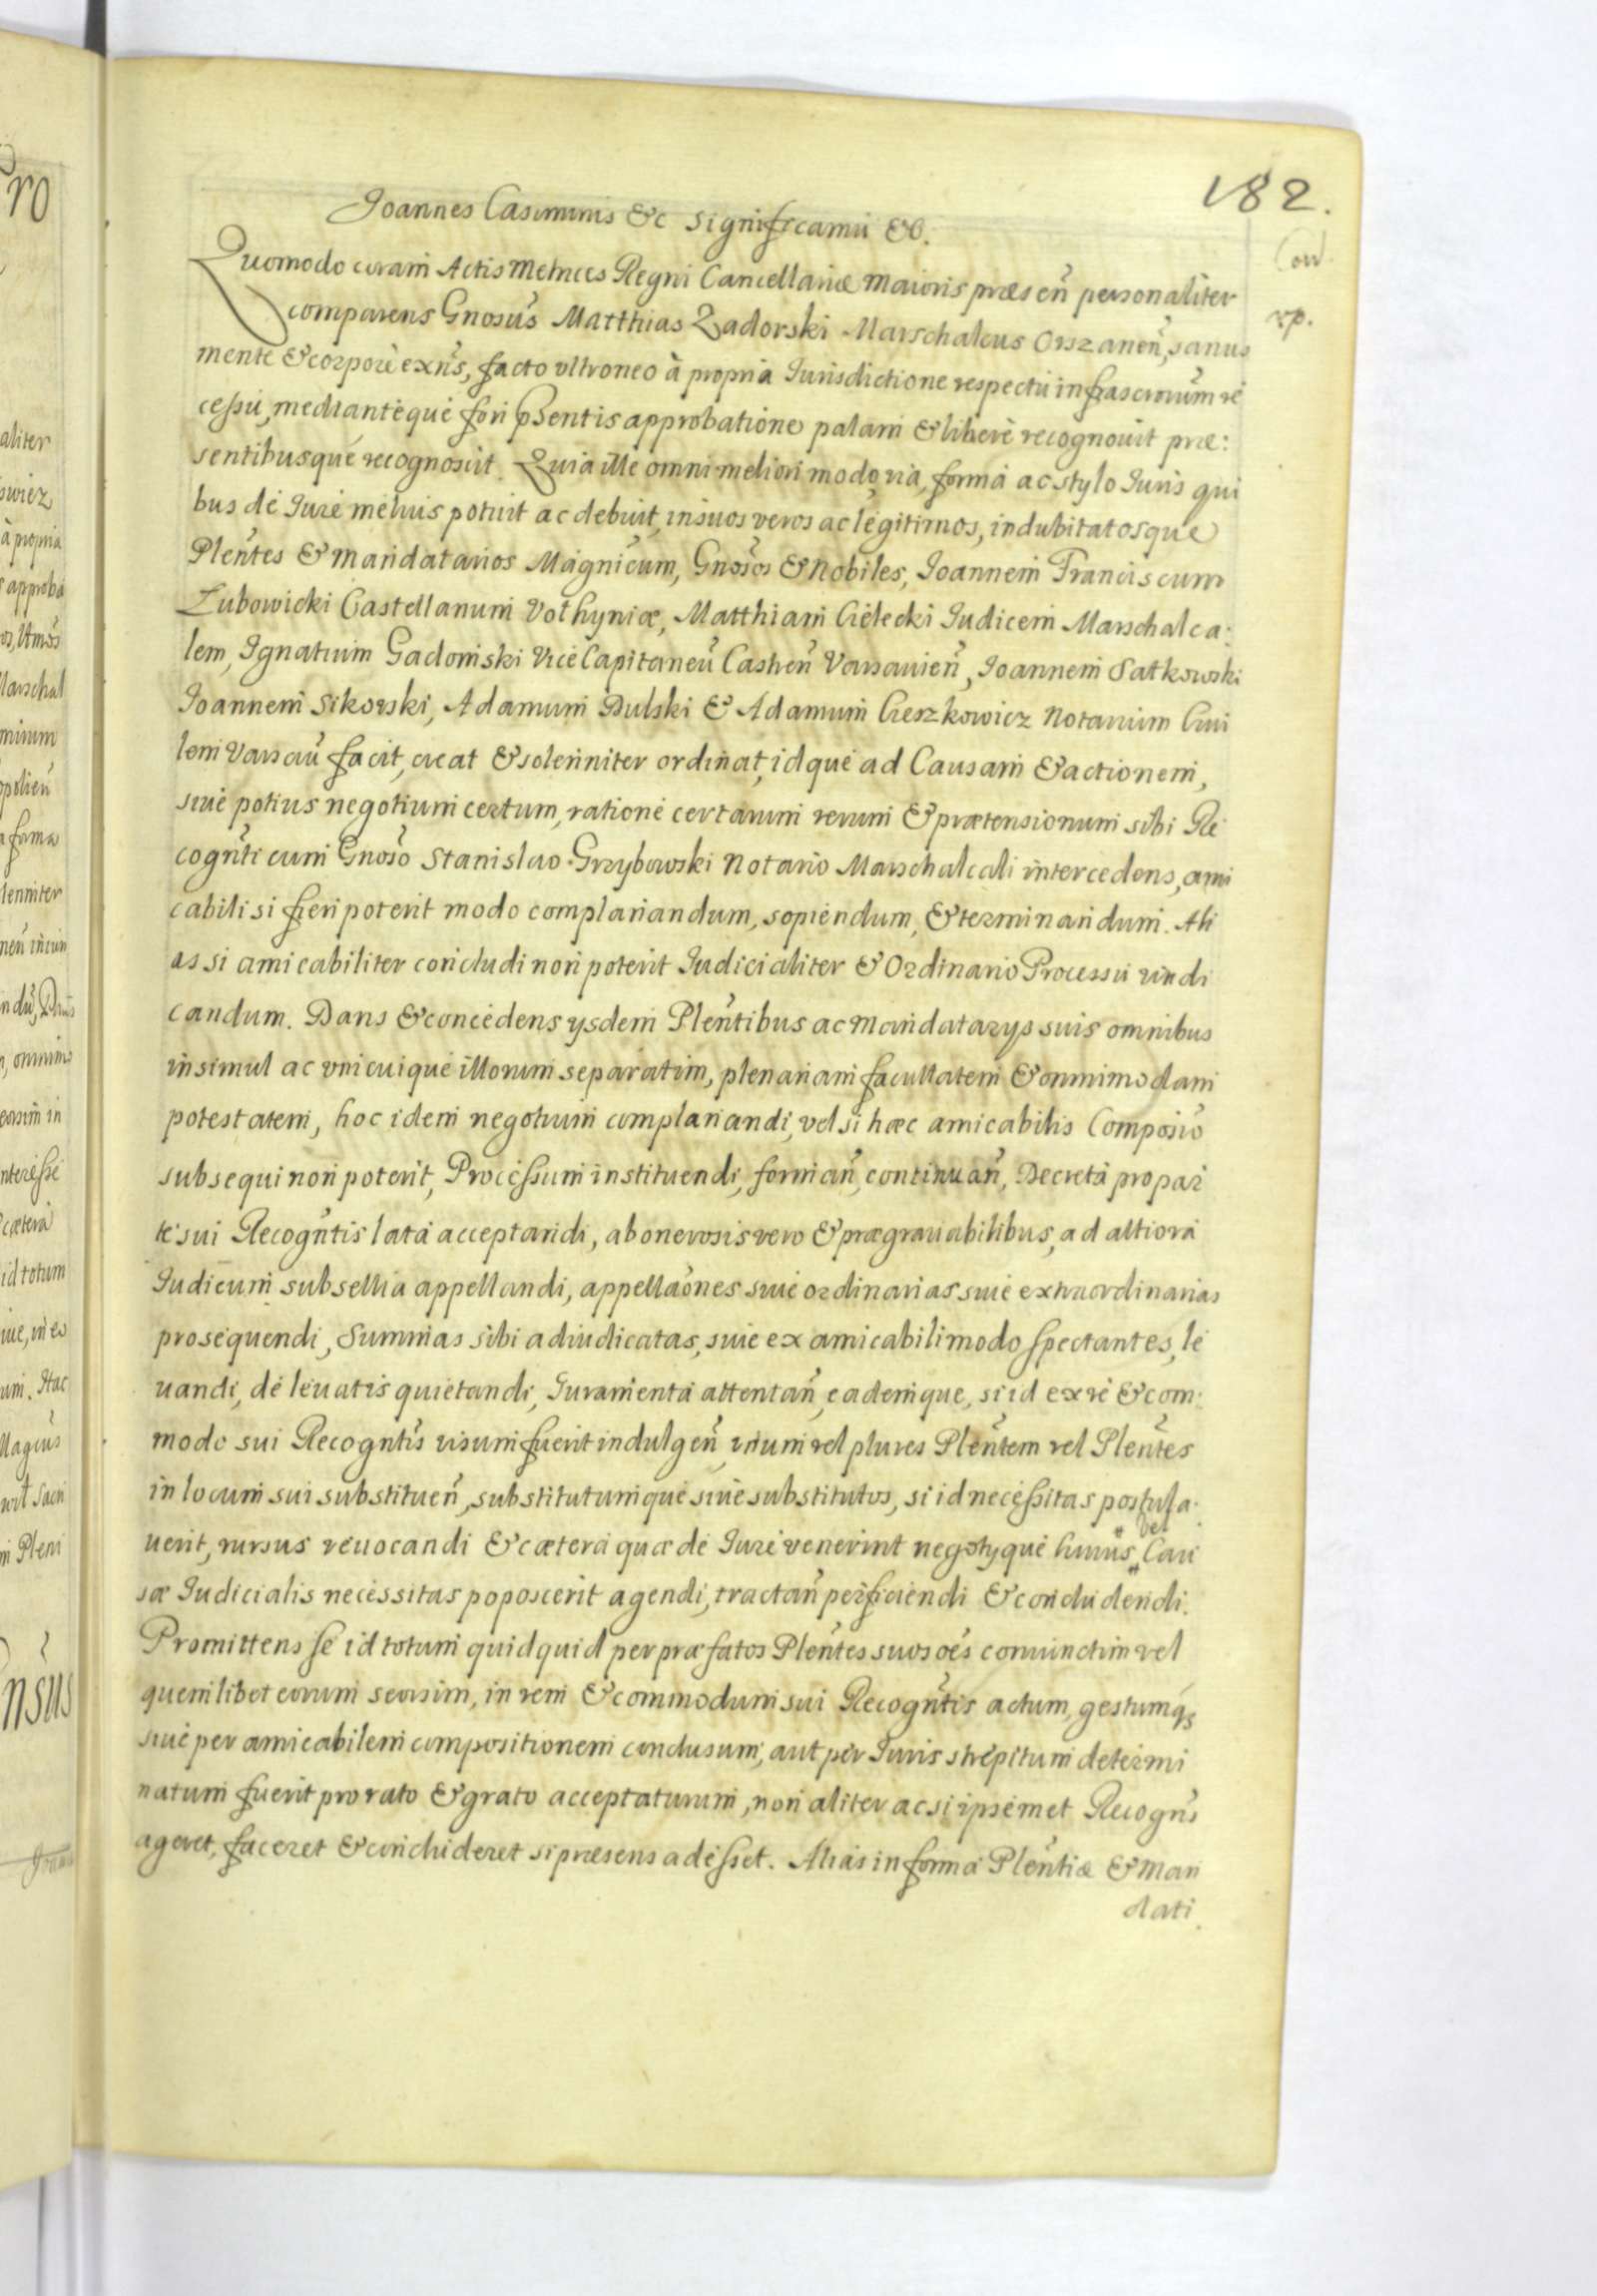 182.
Joannes Casimirus &c significamu &c.
Cord.
Quomodo coram Actis Metrices Regni Cancellariæ maioris præsen̄ personaliter
rp.
comparens Gnosus Matthias Zadorski Marschalcus Orszanen̄, sanus
mente & corpore exn̄s, facto vltroneo à propria Jurisdictione respectu infrascriorum re
cessu, mediantèque fori p̄sentis approbatione palam & liberè recognouit præ:
sentibusque recognoscit. Quia ille omni meliori modo, via, forma ac stylo Juris qui
bus de Jure melius potuit ac debuit, in suos veros ac legitimos, indubitatosque
Plen̄tes & mandatarios Magnicum, Gnosos & Nobiles, Joannem Franciscum
Lubowicki Castellanum Volhyniæ, Matthiam Cielecki Judicem Marschalca:
lem, Ignatium Gadomski Vice Capitaneū Castren̄ Varsauien̄, Joannem Satkowski
Joannem Sikorski, Adamum Dulski & Adamum Cieszkowicz Notarium Ciui
lem Varsau̅ facit, creat & solenniter ordinat, idque ad Causam & actionem,
siue potius negotium certum, ratione certarum rerum & prætensionum sibi Re
cogn̄ti cum Gnoso Stanislao Grzybowski Notario Marschalcali intercedens, ami
cabili si fieri poterit modo complanandum, sopiendum, & terminandum. Ali
as si amicabiliter concludi non poterit Judicialiter & Ordinario Processu vindi
candum. Dans & concedens ysdem Plen̄tibus ac mandatarys suis omnibus
insimul ac vnicuique illorum separatim, plenariam facultatem & omnimodam
potestatem, hoc idem negotium complanandi, vel si hæc amicabilis Composio
subsequi non poterit, Processum instituendi, forman̄, continuan̄, Decreta pro par
te sui Recogn̄tis lata acceptandi, ab onerosis vero & prægrauabilibus, ad altiora
Judicum subsellia appellandi, appellaōnes siue ordinarias siue extraordinarias
prosequendi, Summas sibi adiudicatas, siue ex amicabili modo spectantes, le
uandi, de leuatis quietandi, Juramenta attentan̄, eademque, si id ex re & com:
modo sui Recogn̄tis visum fuerit indulgen̄, vnum vel plures Plen̄tem vel Plen̄tes
in locum sui substituen̄, substitutumque siue substitutos, si id necessitas postula:
vel
uerit, rursus reuocandi & cætera quæ de Jure venerint negotyque huius Cau
sæ Judicialis necessitas poposcerit agendi, tractan̄ perficiendi & concludendi.
Promittens se id totum quidquid per præfatos Plen̄tes suos oēs coniunctim vel
quemlibet eorum seorsim, in rem & commodum sui Recogn̄tis actum, gestumq3
siue per amicabilem compositionem conclusum, aut per Juris strepitum determi
natum fuerit pro rato & grato acceptaturum, non aliter ac si ipsemet Recogn̄s
ageret, faceret & concluderet si præsens adesset. Alias in forma Plen̄tiæ & Man
dati